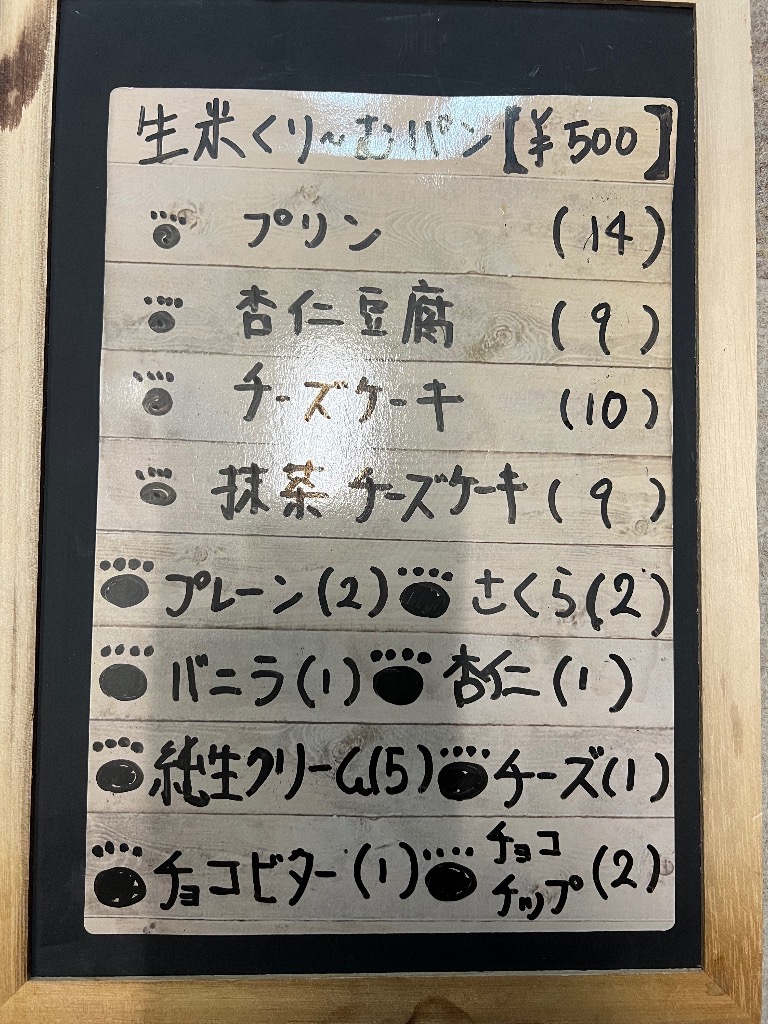 生米くり〜むパン【¥500】
プリン (14)
杏仁豆腐 (9)
チーズケーキ (10)
抹茶チーズケーキ (9)
プレーン(2) さくら(2)
バニラ(1) 杏仁(1)
純生クリーム(5) チーズ(1)
チョコビター(1) チョコチップ(2)